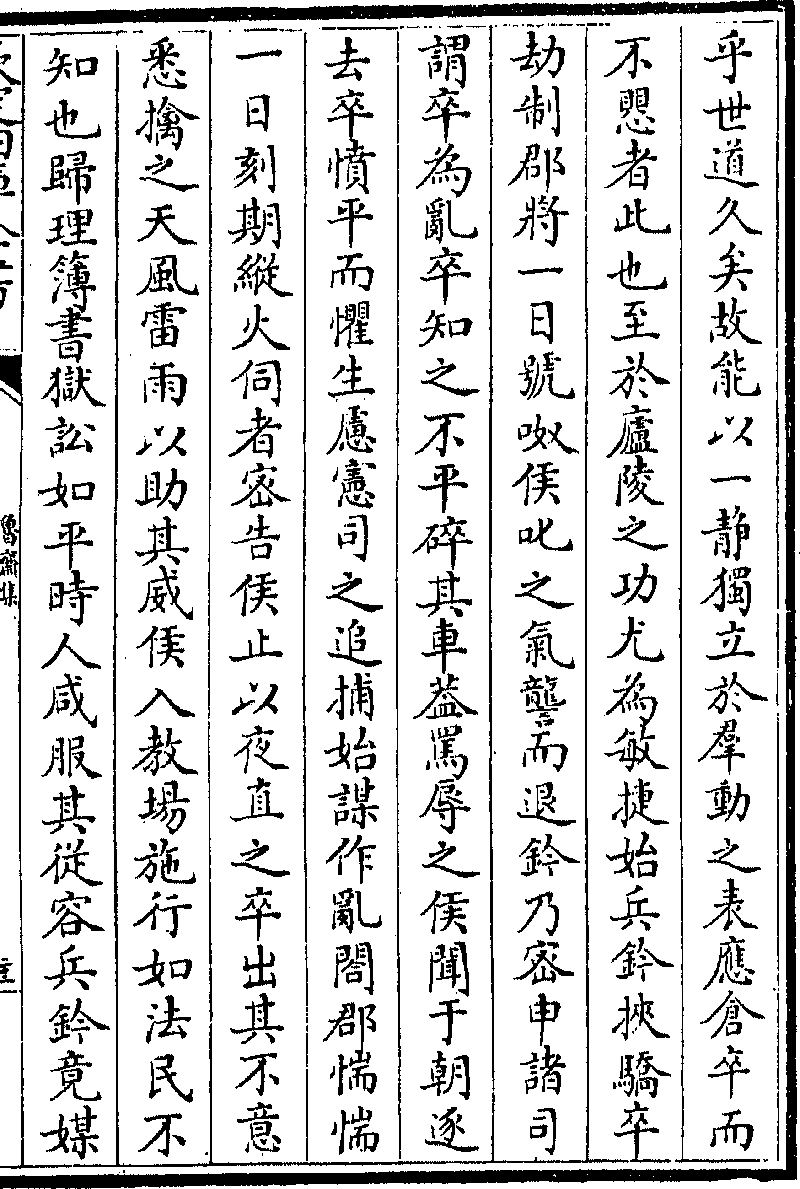 乎世道久矣故能以一静獨立於羣動之表應倉卒而
不愳者此也至於廬陵之功尤為敏捷始兵鈐挾驕卒
劫制郡將一日號呶侯叱之氣讋而退鈐乃宻申諸司
謂卒為亂卒知之不平碎其車葢罵辱之侯聞于朝逐
去卒憤平而懼生慮憲司之追捕始謀作亂閤郡惴惴
一日刻期縱火伺者宻告侯止以夜直之卒出其不意
悉擒之天風雷雨以助其威侯入教場施行如法民不
知也歸理簿書獄訟如平時人咸服其從容兵鈐竟媒
魯齋集